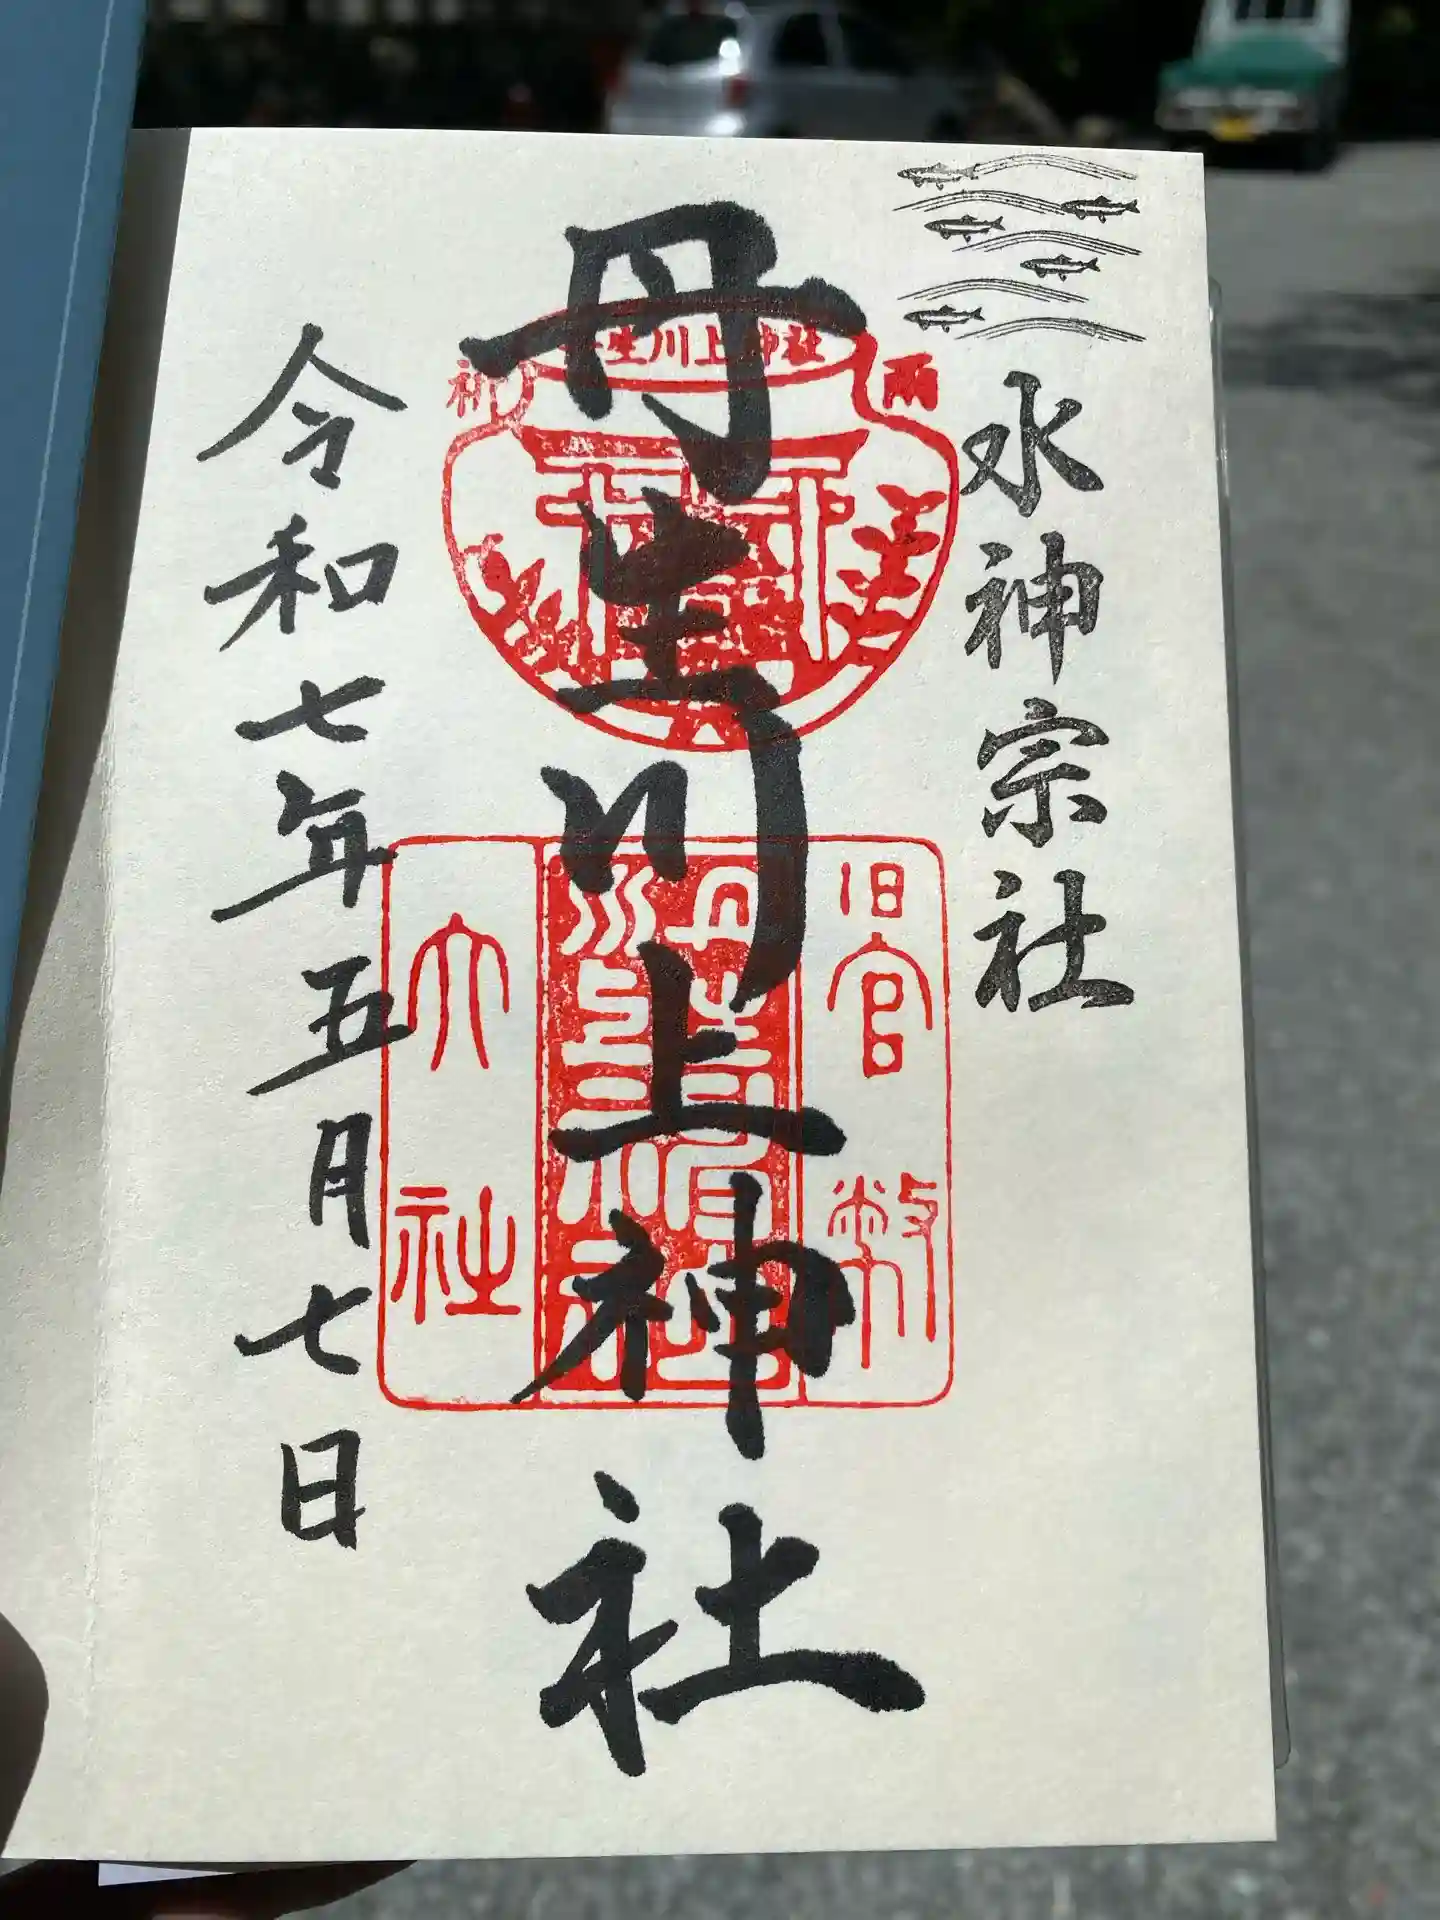 水神宗社
丹生川上神社
令和七年五月七日
生川上神社
祈
雨
旧官幣
大社